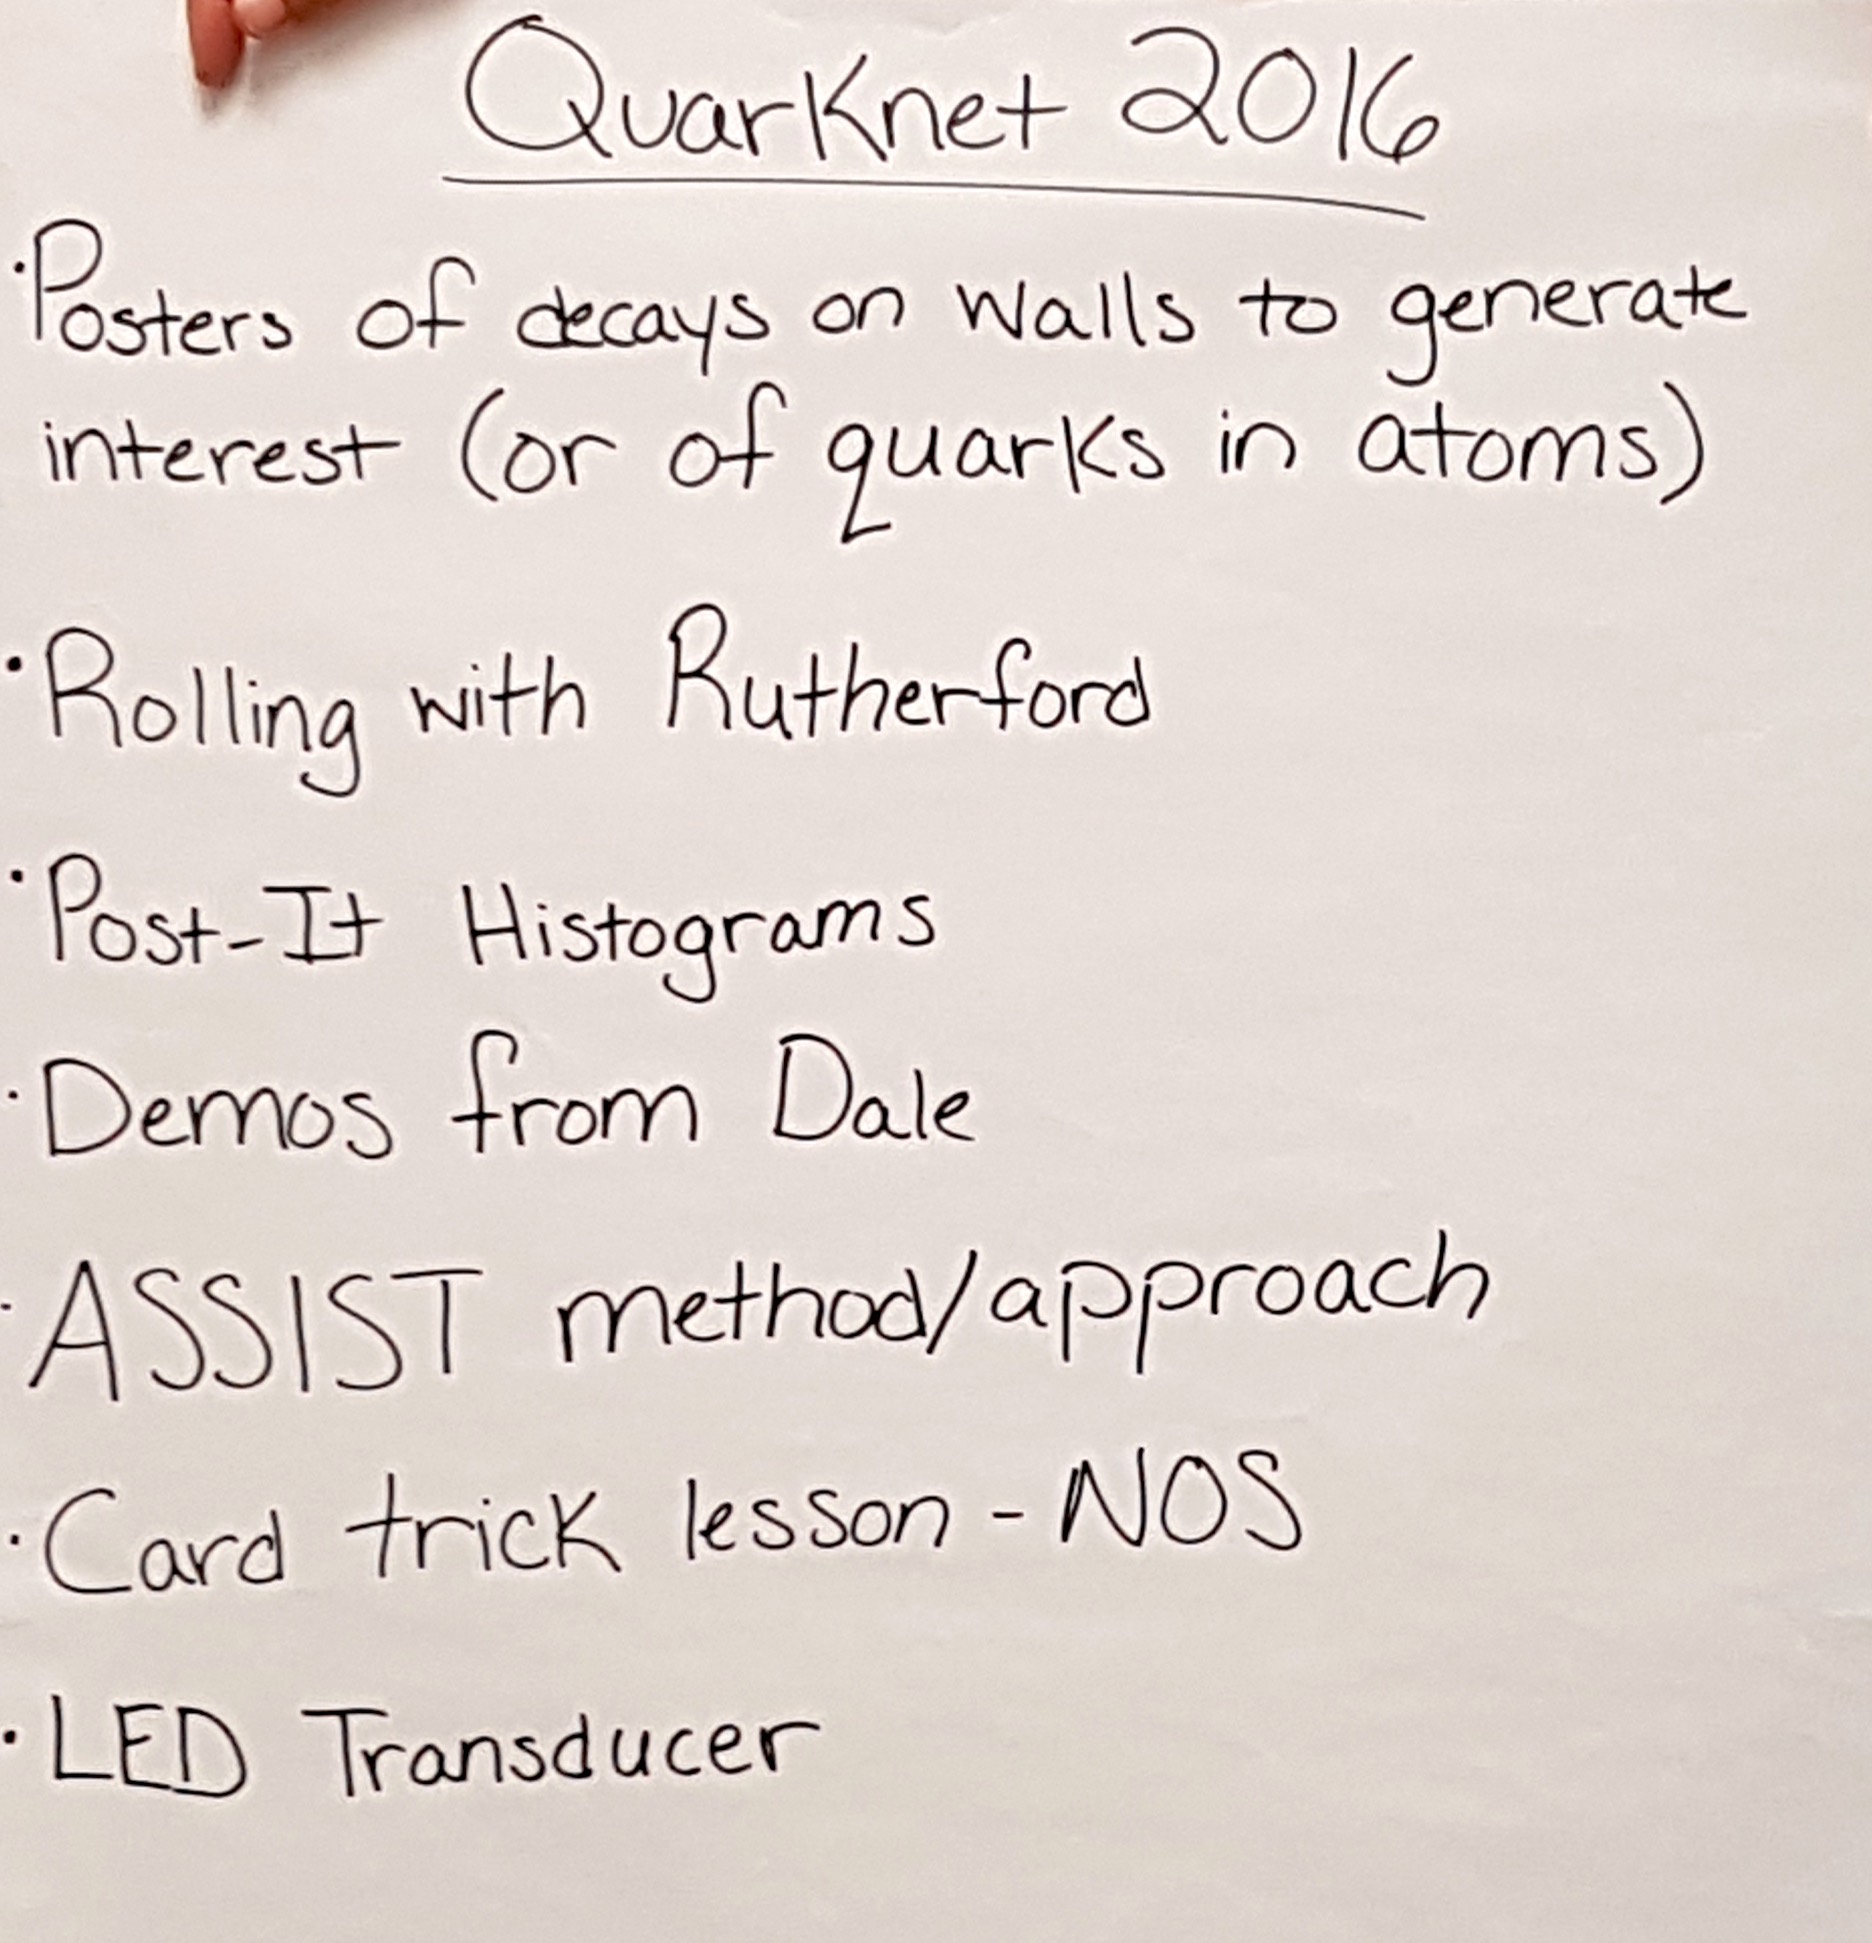 Quarknet 2016
·Posters of decays on walls to generate
interest (or of quarks in atoms)
·Rolling with Rutherford
·Post-It Histograms
·Demos from Dale
·ASSIST method/approach
·Card trick lesson - NOS
·LED Transducer